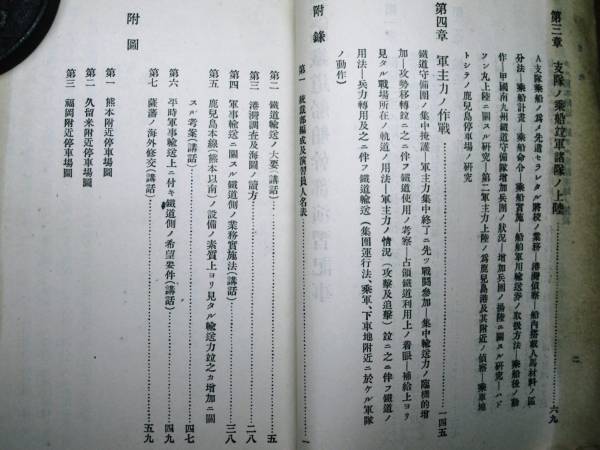 第三章 支隊ノ乘船竝軍諸隊ノ上陸……六九
A支隊乘船ノ爲メ先遣セラレタル將校ノ業務―港灣偵察―船內搭載人馬材料ノ區
分法―乘船計畫―乘船命令―乘船實施―船舶軍用輸送券ノ取扱方法―乘船後ノ動
作―甲國南九州鐵道守備隊增加兵團ノ狀況―增加兵團ノ揚陸ニ關スル硏究―ハド
ソン丸上陸ニ關スル硏究―第二軍主力上陸ノ爲鹿兒島港及其附近ノ偵察―乘車地
トシテノ鹿兒島停車場ノ硏究
第四章 軍主力ノ作戰……一四五
鐵道守備團ノ集中掩護―軍主力集中終了ニ先ツ戰鬪參加―集中輸送力ノ臨機的增
加―攻勢移轉竝ニ之ニ伴フ鐵道使用ノ考察―占領鐵道利用上ノ着眼―補給上ヨリ
見タル戰場所在ノ軌道ノ用法―軍主力ノ情況(攻擊及追擊)竝ニ之ニ伴フ鐵道ノ
用法―兵力轉用及之ニ伴フ鐵道輸送(集團運行法、乘車、下車地附近ニ於ケル軍隊
ノ動作)
附錄
第一 統裁部編成及演習員人名表……一
第二 鐵道輸送ノ大要(講話)……五
第三 港灣調査及海圖ノ讀方……二八
第四 軍事輸送ニ關スル鐵道側ノ業務實施法(講話)……三八
第五 鹿兒島本線(熊本以南)ノ設備ノ素質上ヨリ見タル輸送力竝之カ增加ニ關
スル考案(講話)……四七
第六 平時軍事輸送上ニ付キ鐵道側ノ希望要件(講話)……四九
第七 薩藩ノ海外修交(講話)……五九
附圖
第一 熊本附近停車場圖
第二 久留米附近停車場圖
第三 福岡附近停車場圖
二